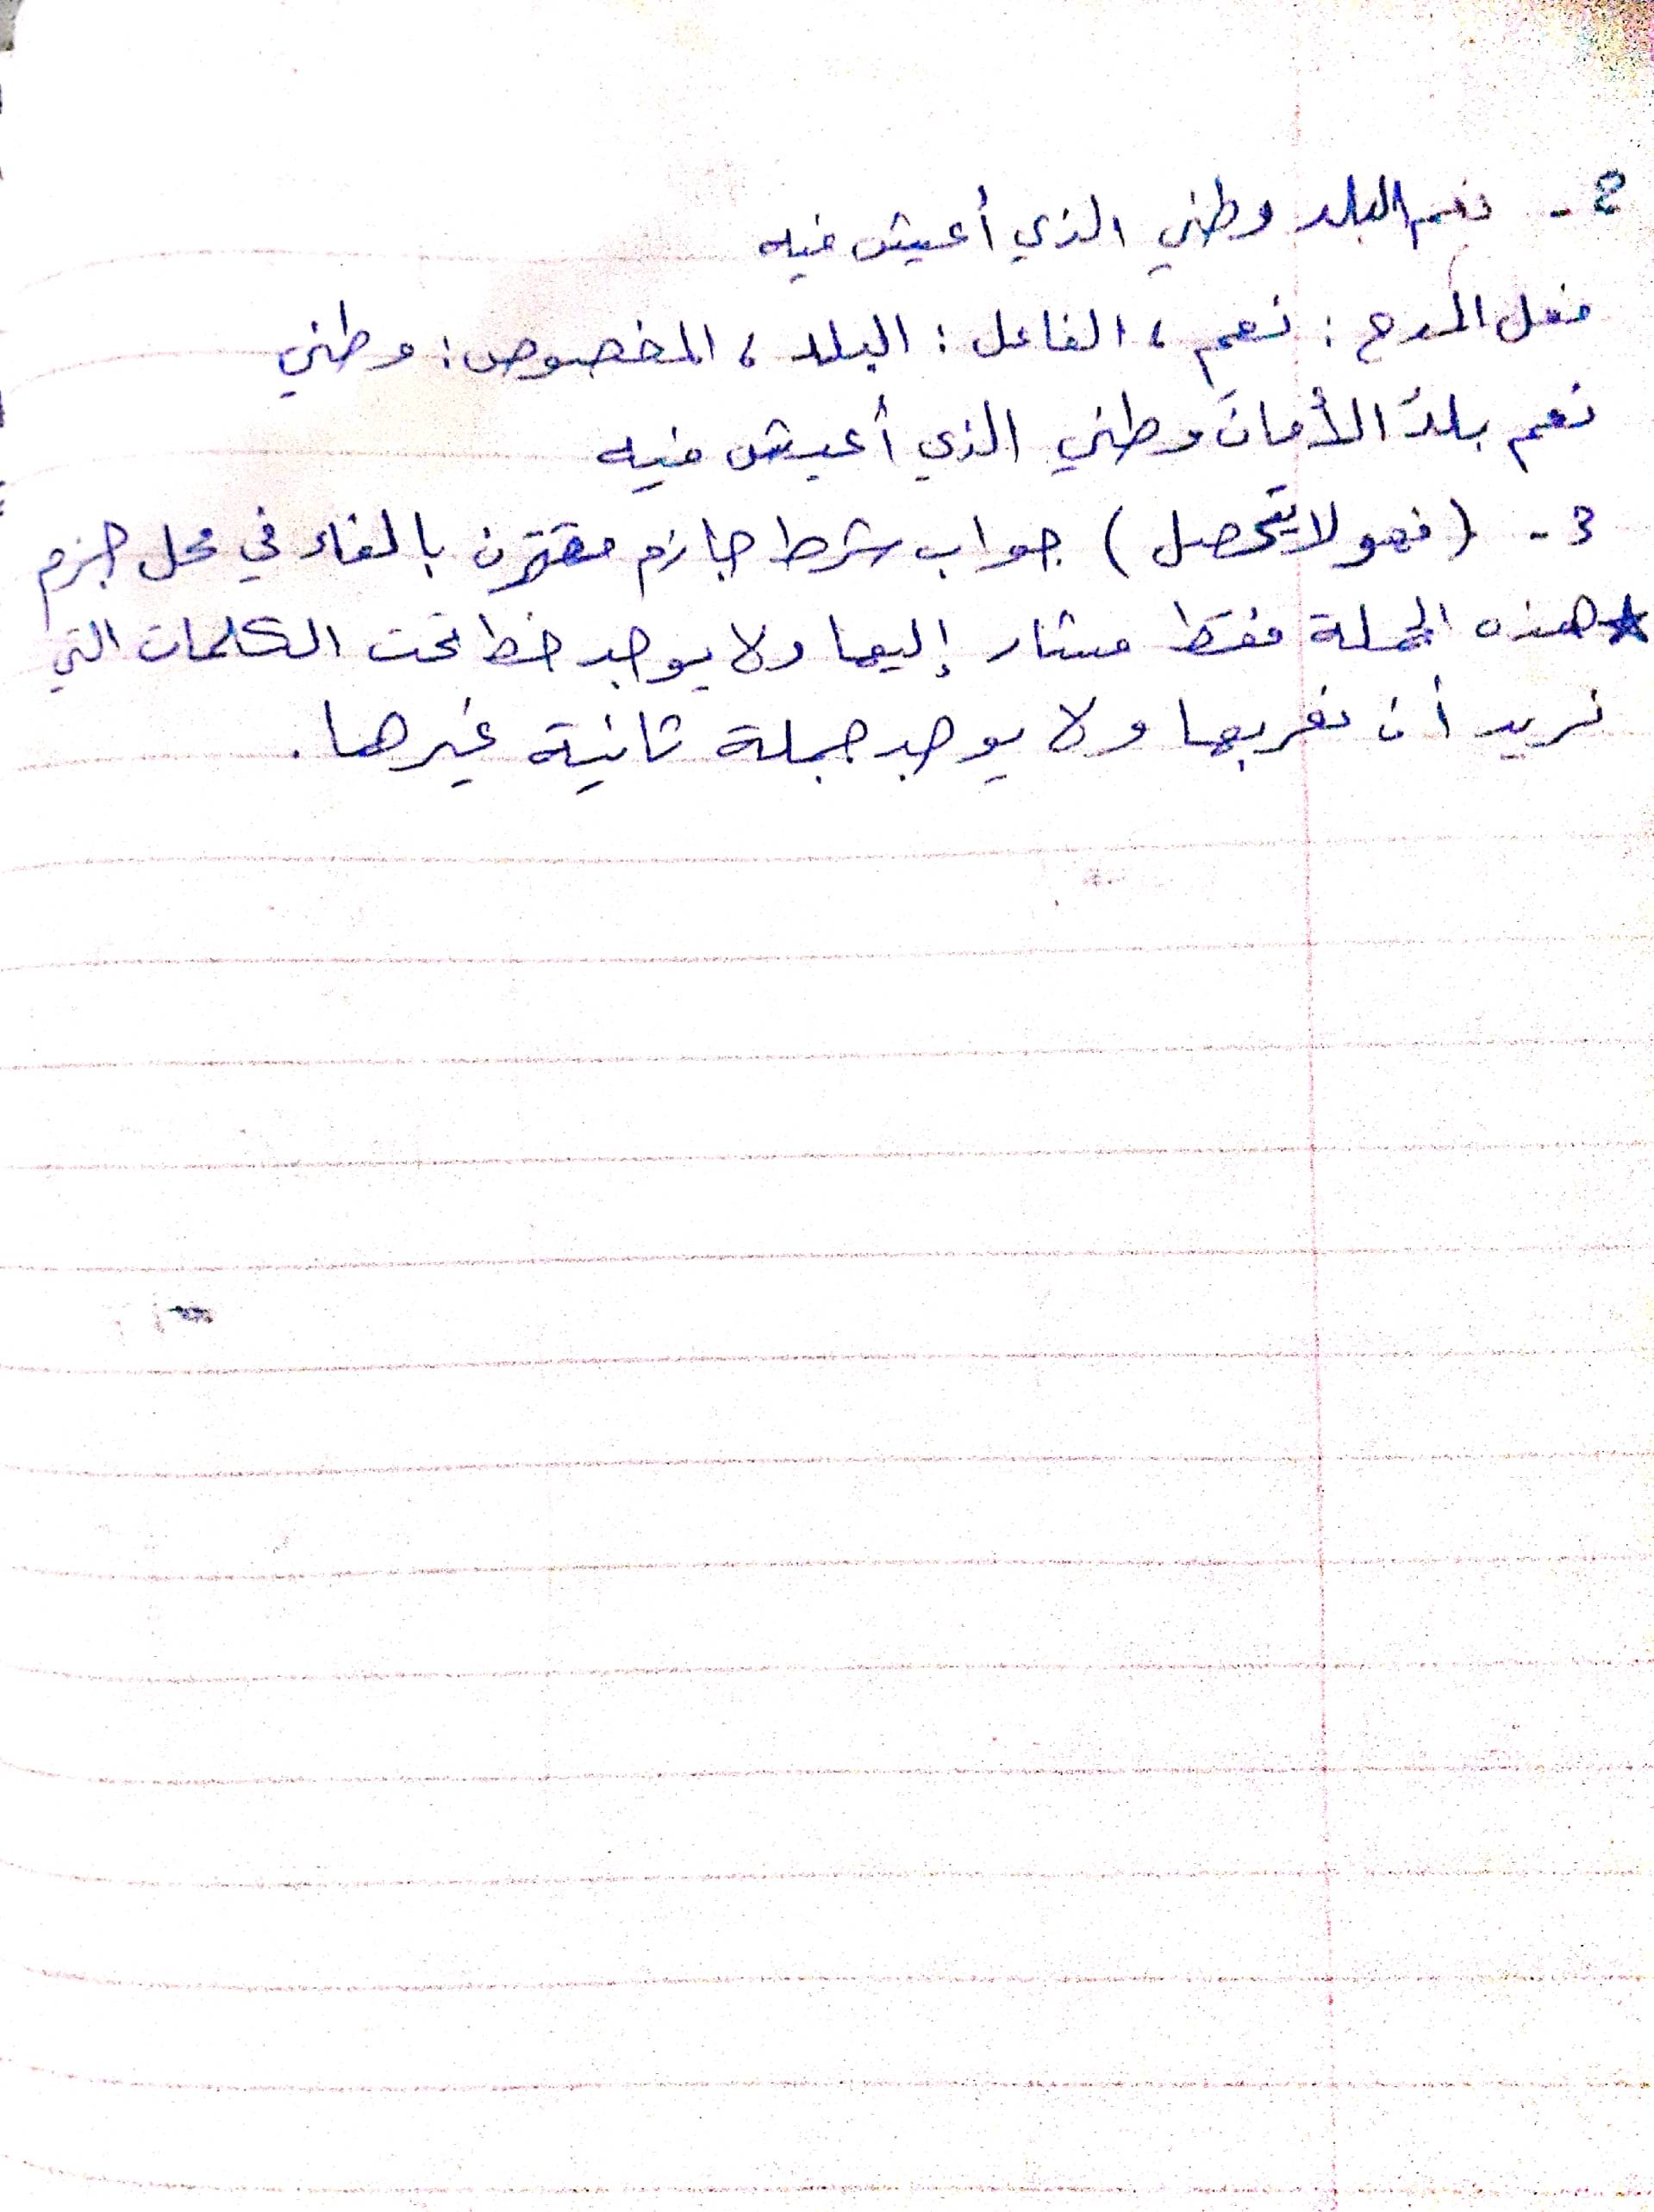 2 - نعم البلد وطني الذي أعيش فيه
فعل المدح : نعم ، الفاعل : البلد ، المخصوص : وطني
نعم بلدُ الأمان وطني الذي أعيش فيه
3 - (فهو لا يتحصل) جواب شرط جازم مقترن بالفاء في محل جزم
* هذه الجملة فقط مشار إليها ولا يوجد خط تحت الكلمات التي
نريد أن نعربها ولا يوجد جملة ثانية غيرها .